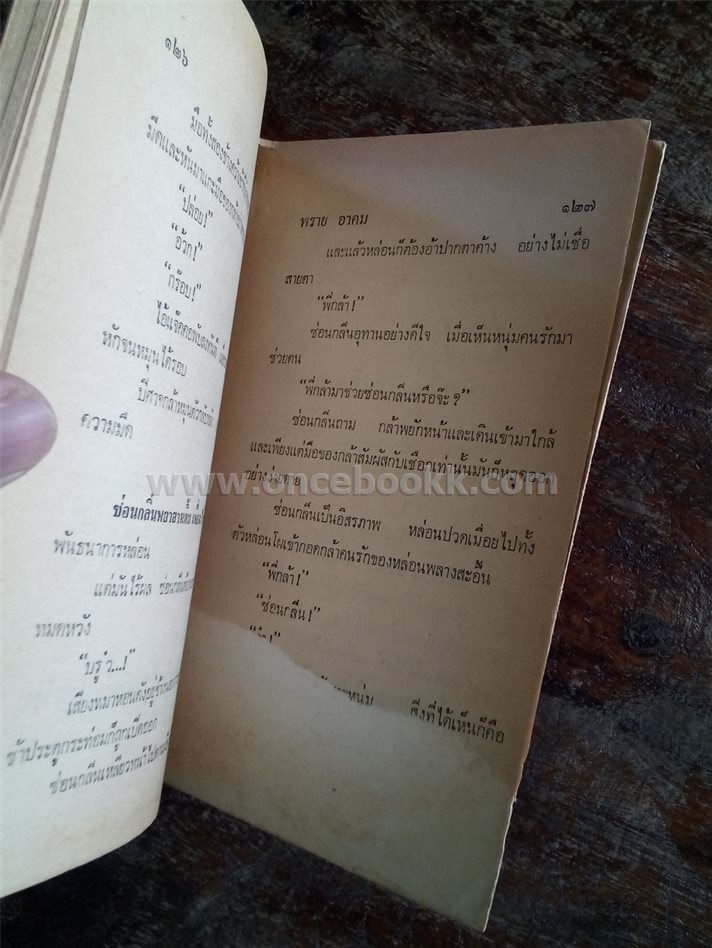 ๑๒๖
มือทั้งสองข้าง
มีดและหันมา
“ปล่อย!”
“อ้วก!”
“กร๊อบ!”
ไอ้แจ้คคอพับลงทันที
หักจนหมุนได้รอบ
ปีศาจกล้าหมุนตัว
ความมืด
ซ่อนกลิ่นพยายามดิ้น
พันธนาการหล่อน
แต่มันไร้ผล
หมดหวัง
“บรู๋ว...!”
เสียงหมาหอนดังอยู่
ช้าประตูกระท่อมก็ถูกเปิดออก
ซ่อนกลิ่นเหลียวหน้าไป
พราย อาคม ๑๒๗
และแล้วหล่อนก็ต้องอ้าปากตาค้าง อย่างไม่เชื่อ
สายตา
“พี่กล้า!”
ซ่อนกลิ่นอุทานอย่างดีใจ เมื่อเห็นหนุ่มคนรักมา
ช่วยตน
“พี่กล้ามาช่วยซ่อนกลิ่นหรือจ๊ะ?”
ซ่อนกลิ่นถาม กล้าพยักหน้าและเดินเข้ามาใกล้
และเพียงแต่มือของกล้าสัมผัสกับเชือกเท่านั้นมันก็หลุดออก
อย่างง่ายดาย
www.oncebookk.com
ซ่อนกลิ่นเป็นอิสรภาพ หล่อนปวดเมื่อยไปทั้ง
ตัวหล่อนโผเข้ากอดกล้าคนรักของหล่อนพลางสะอื้น
“พี่กล้า!”
“ซ่อนกลิ่น!”
หนุ่ม สิ่งที่ได้เห็นก็คือ